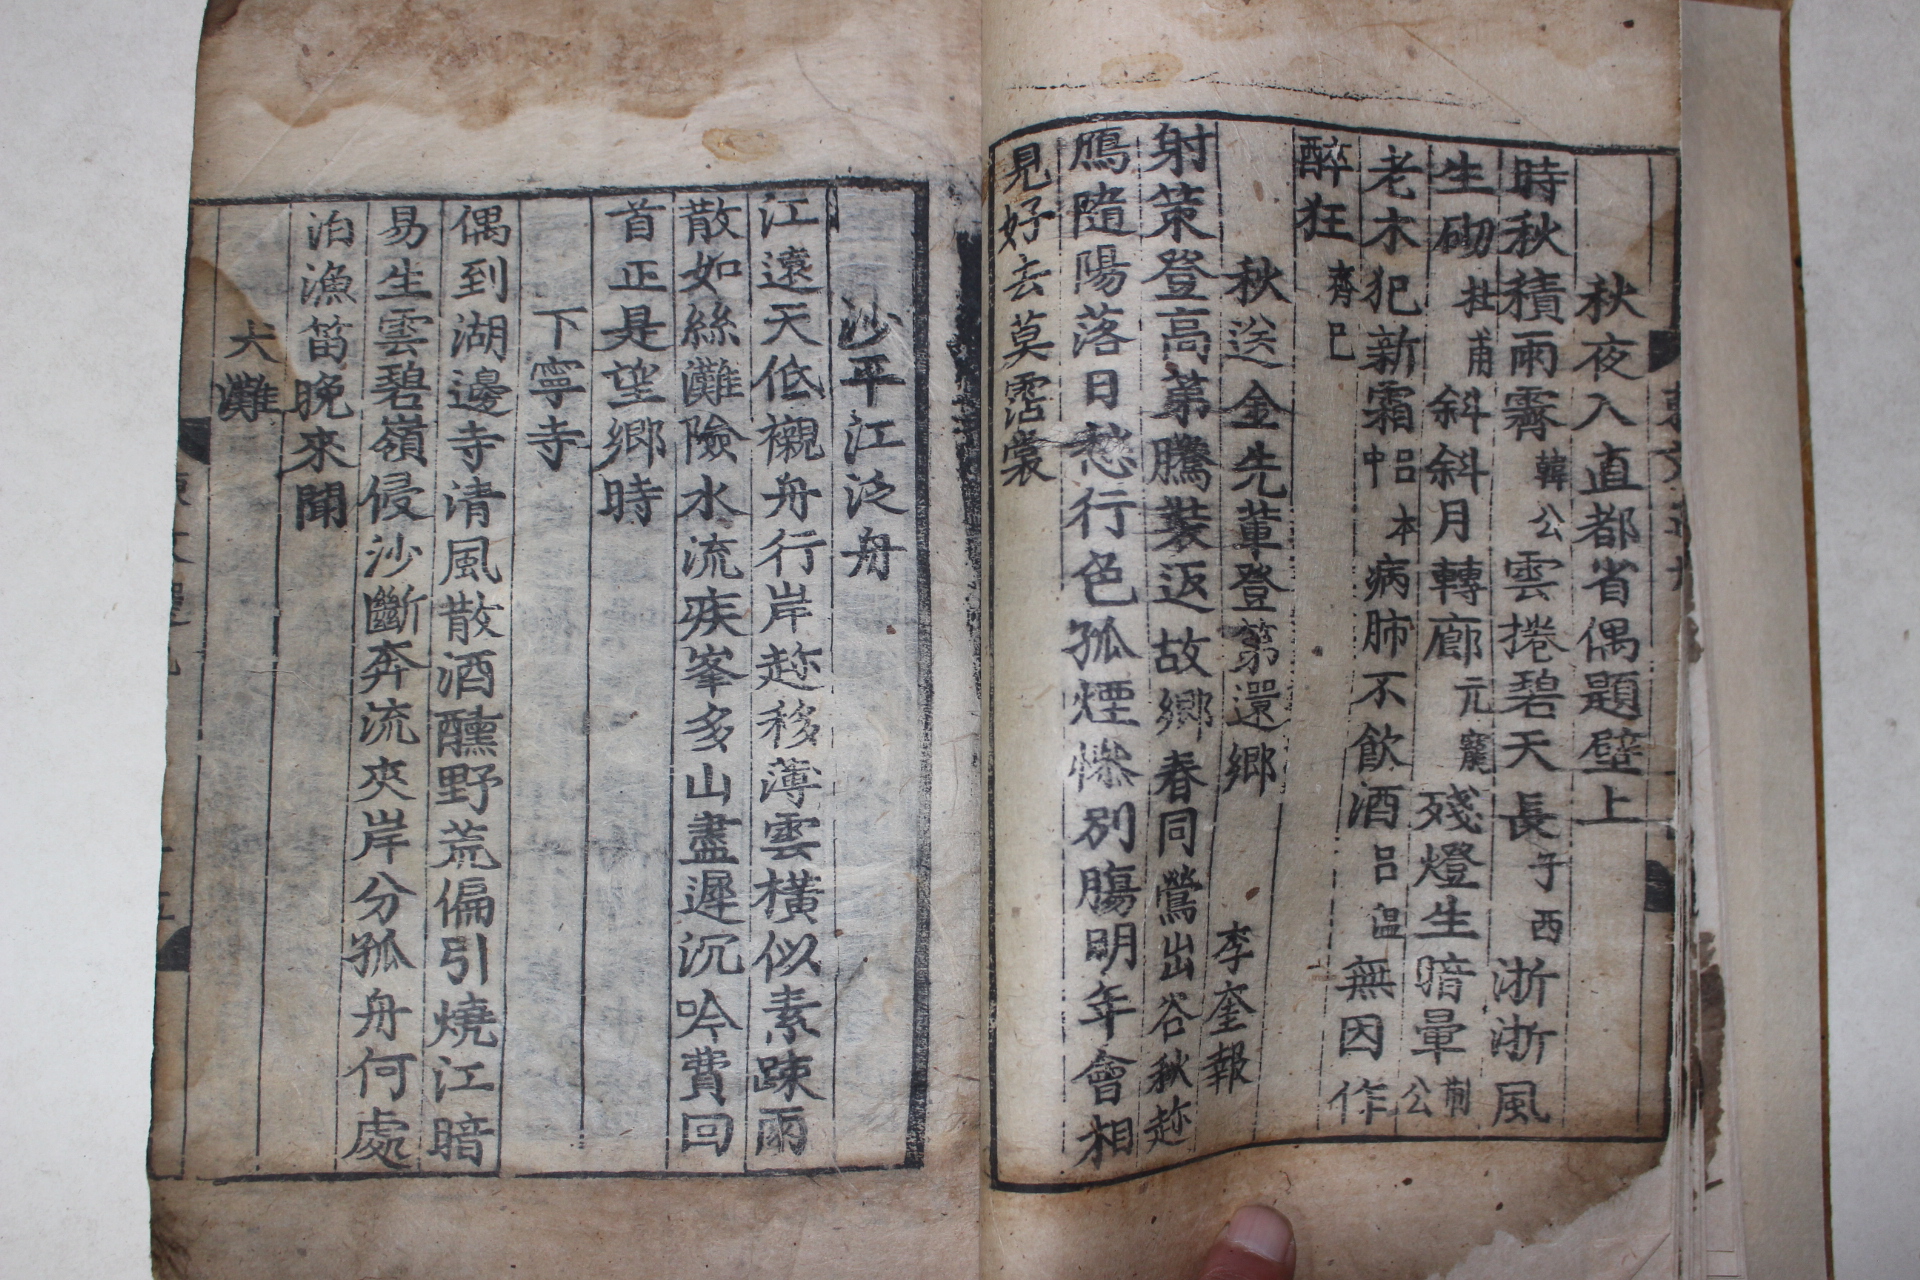 秋夜入直都省偶題壁上
時秋積雨霽韓公雲捲碧天長子西浙浙風
生砌杜甫斜斜月轉廊元寵殘燈生暗暈荊公
老木犯新霜呂本中病肺不飲酒呂溫無因作
醉狂齊己
秋送金先輩登第還鄉 李奎報
射策登高第騰裝返故鄉春同鶯出谷秋趂
鴈隨陽落日愁行色孤煙慘別膓明年會相
見好去莫霑裳
沙平江泛舟
江遠天低襯舟行岸趂移薄雲橫似素踈雨
散如絲灘險水流疾峯多山盡遲沉吟費回
首正是望鄉時
下寧寺
偶到湖邊寺清風散酒醺野荒偏引燒江暗
易生雲碧嶺侵沙斷奔流夾岸分孤舟何處
泊漁笛晚來聞
犬灘